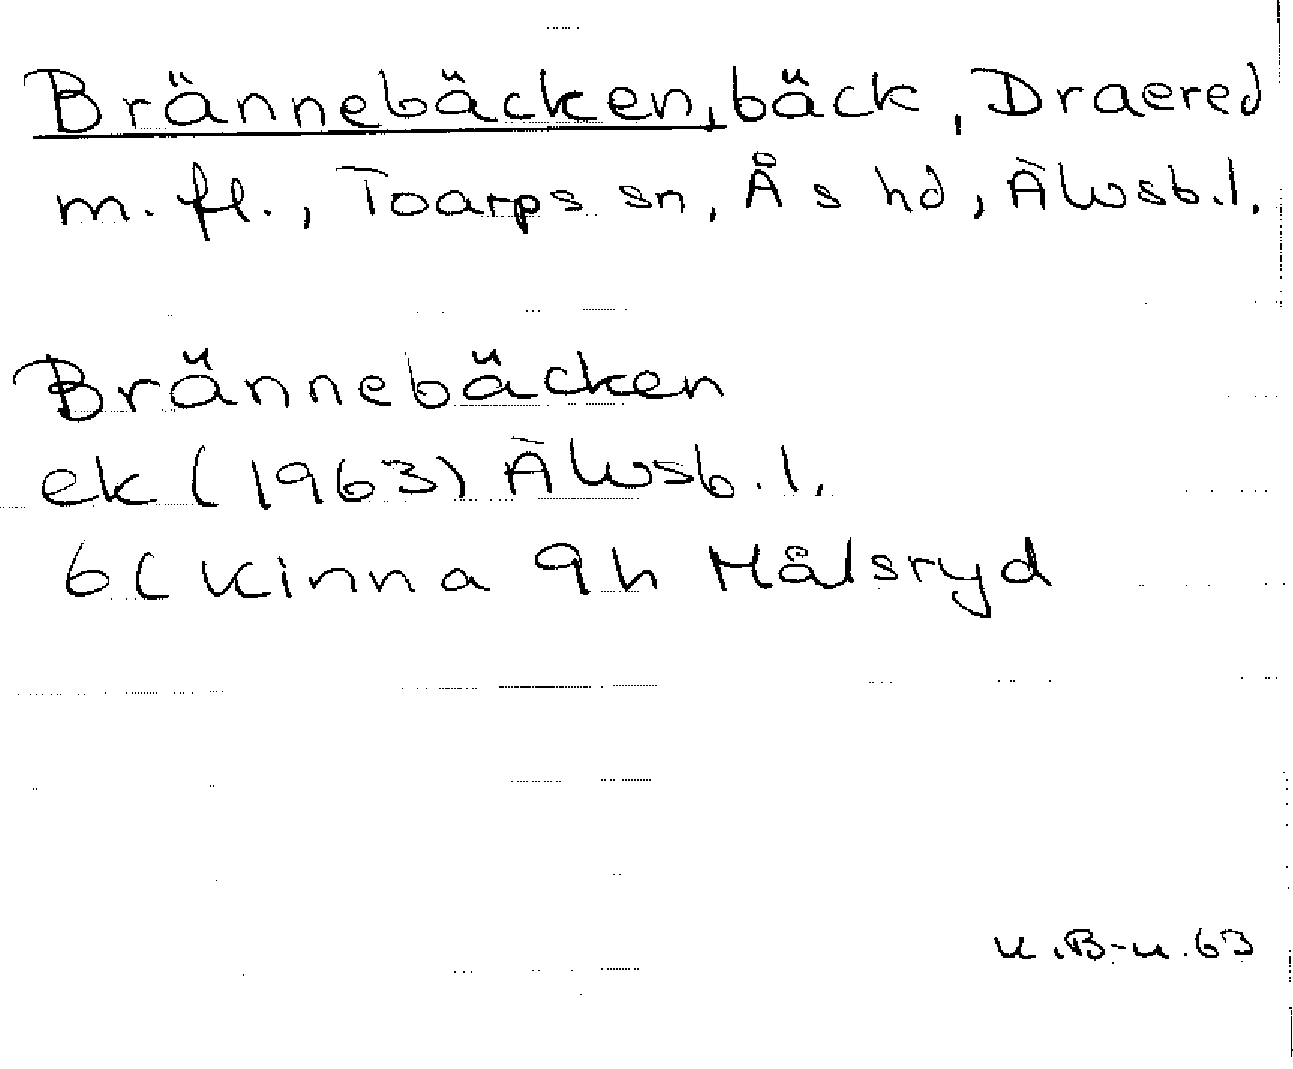 Brännebäcken, bäck, Draered
m. fl., Toarps sn, Ås hd, Älvsb. l.
Brännebäcken
ek (1963) Älvsb. l.
6C Kinna 9h Målsryd
K.B-n. 63